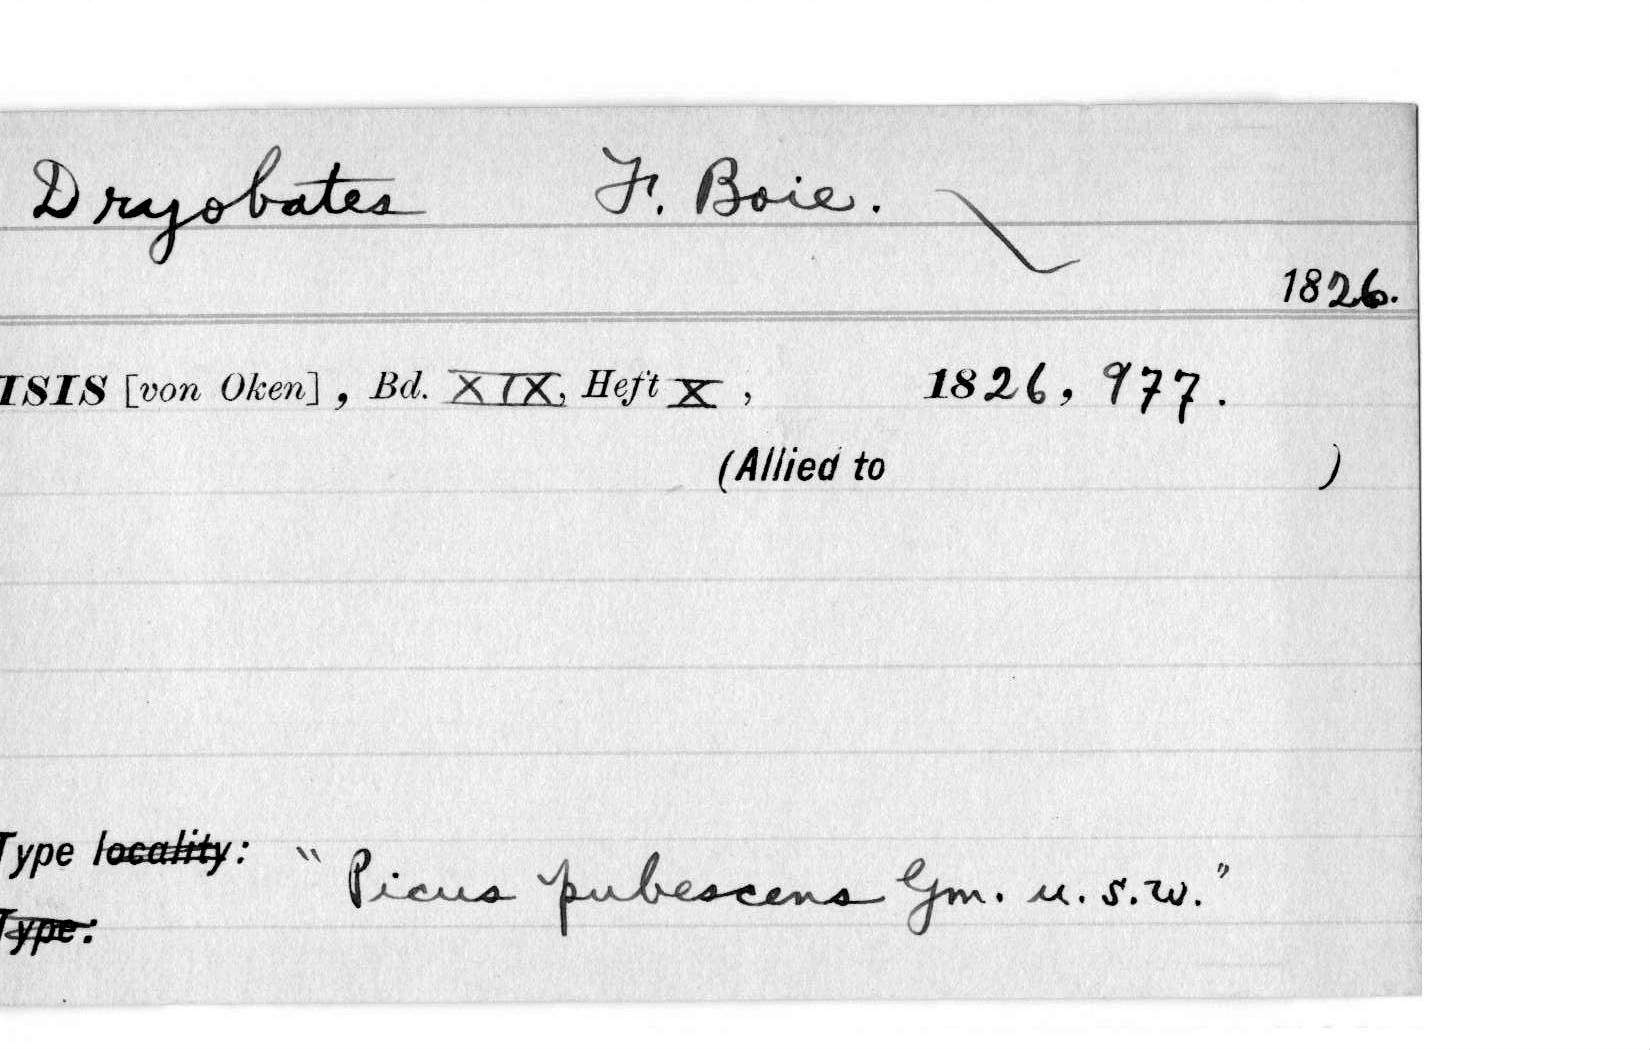 Dryobates F. Boie.
1826.
ISIS [von Oken], Bd. XIX, Heft X, 1826, 977.
(Allied to )
Type locality:
"Picus pubescens Gm. u.s.w."
Type: